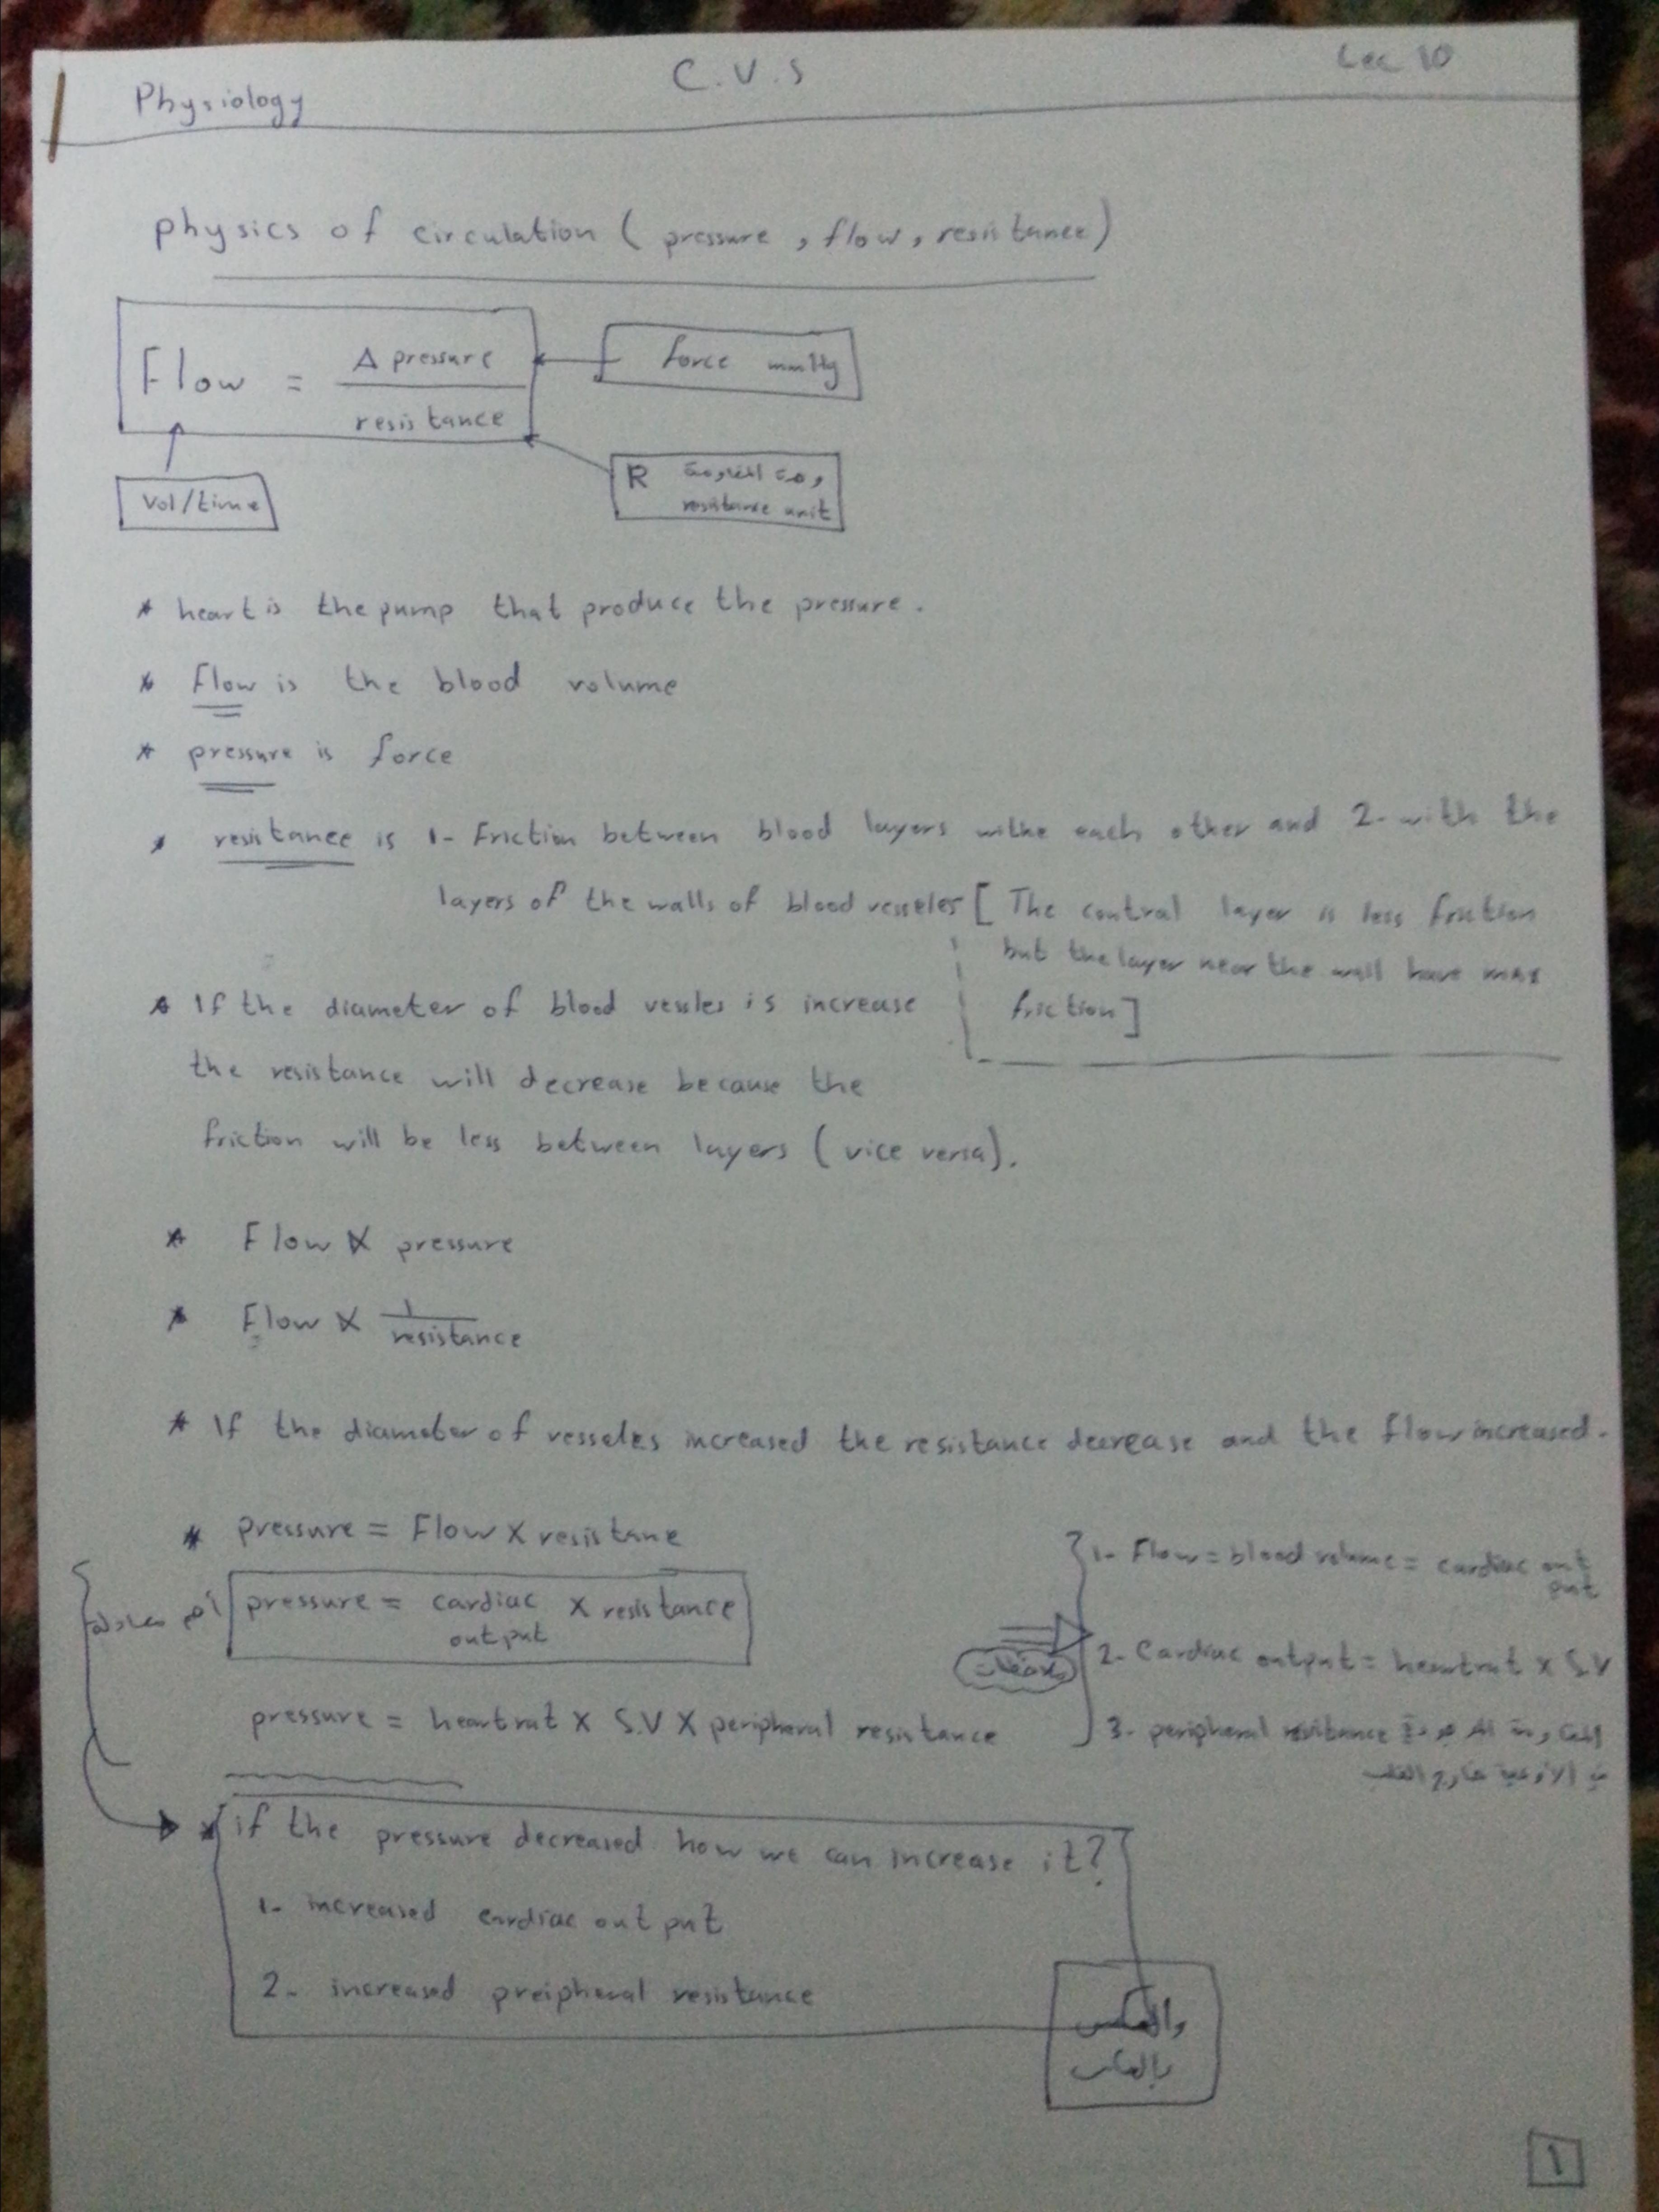 Physiology
C.V.S
Lec 10
physics of circulation ( pressure , flow , resistance )
Flow = Δ pressure / resistance
force mmHg
R وحدة المقاومة
resistance unit
Vol/time
* heart is the pump that produce the pressure .
* Flow is the blood volume
* pressure is force
* resistance is 1- Friction between blood layers withe each other and 2- with the
layers of the walls of blood vesseles [ The central layer is less friction
but the layer near the wall have max
friction ]
* If the diameter of blood vessles is increase
the resistance will decrease because the
friction will be less between layers ( vice versa ).
* Flow ∝ pressure
* Flow ∝ 1 / resistance
* If the diameter of vesseles increased the resistance decrease and the flow increased .
* pressure = Flow x resistane
أهم معادلة
pressure = cardiac output x resistance
pressure = heartrat x S.V x peripheral resistance
ملاحظات
1- Flow = blood volume = cardiac out
put
2- Cardiac output = heartrat x S.V
3- peripheral resistance المقاومة الموجودة
في الأوعية خارج القلب
* if the pressure decreased how we can increase it ?
1- increased cardiac out put
2- increased preipheral resistance
والعكس
بالعكس
1